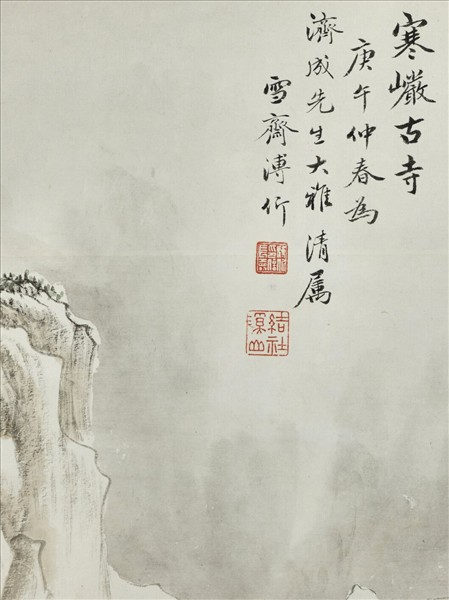 寒巗古寺
庚午仲春為
濟成先生大雅清属
雪齋溥伒
結社溪山